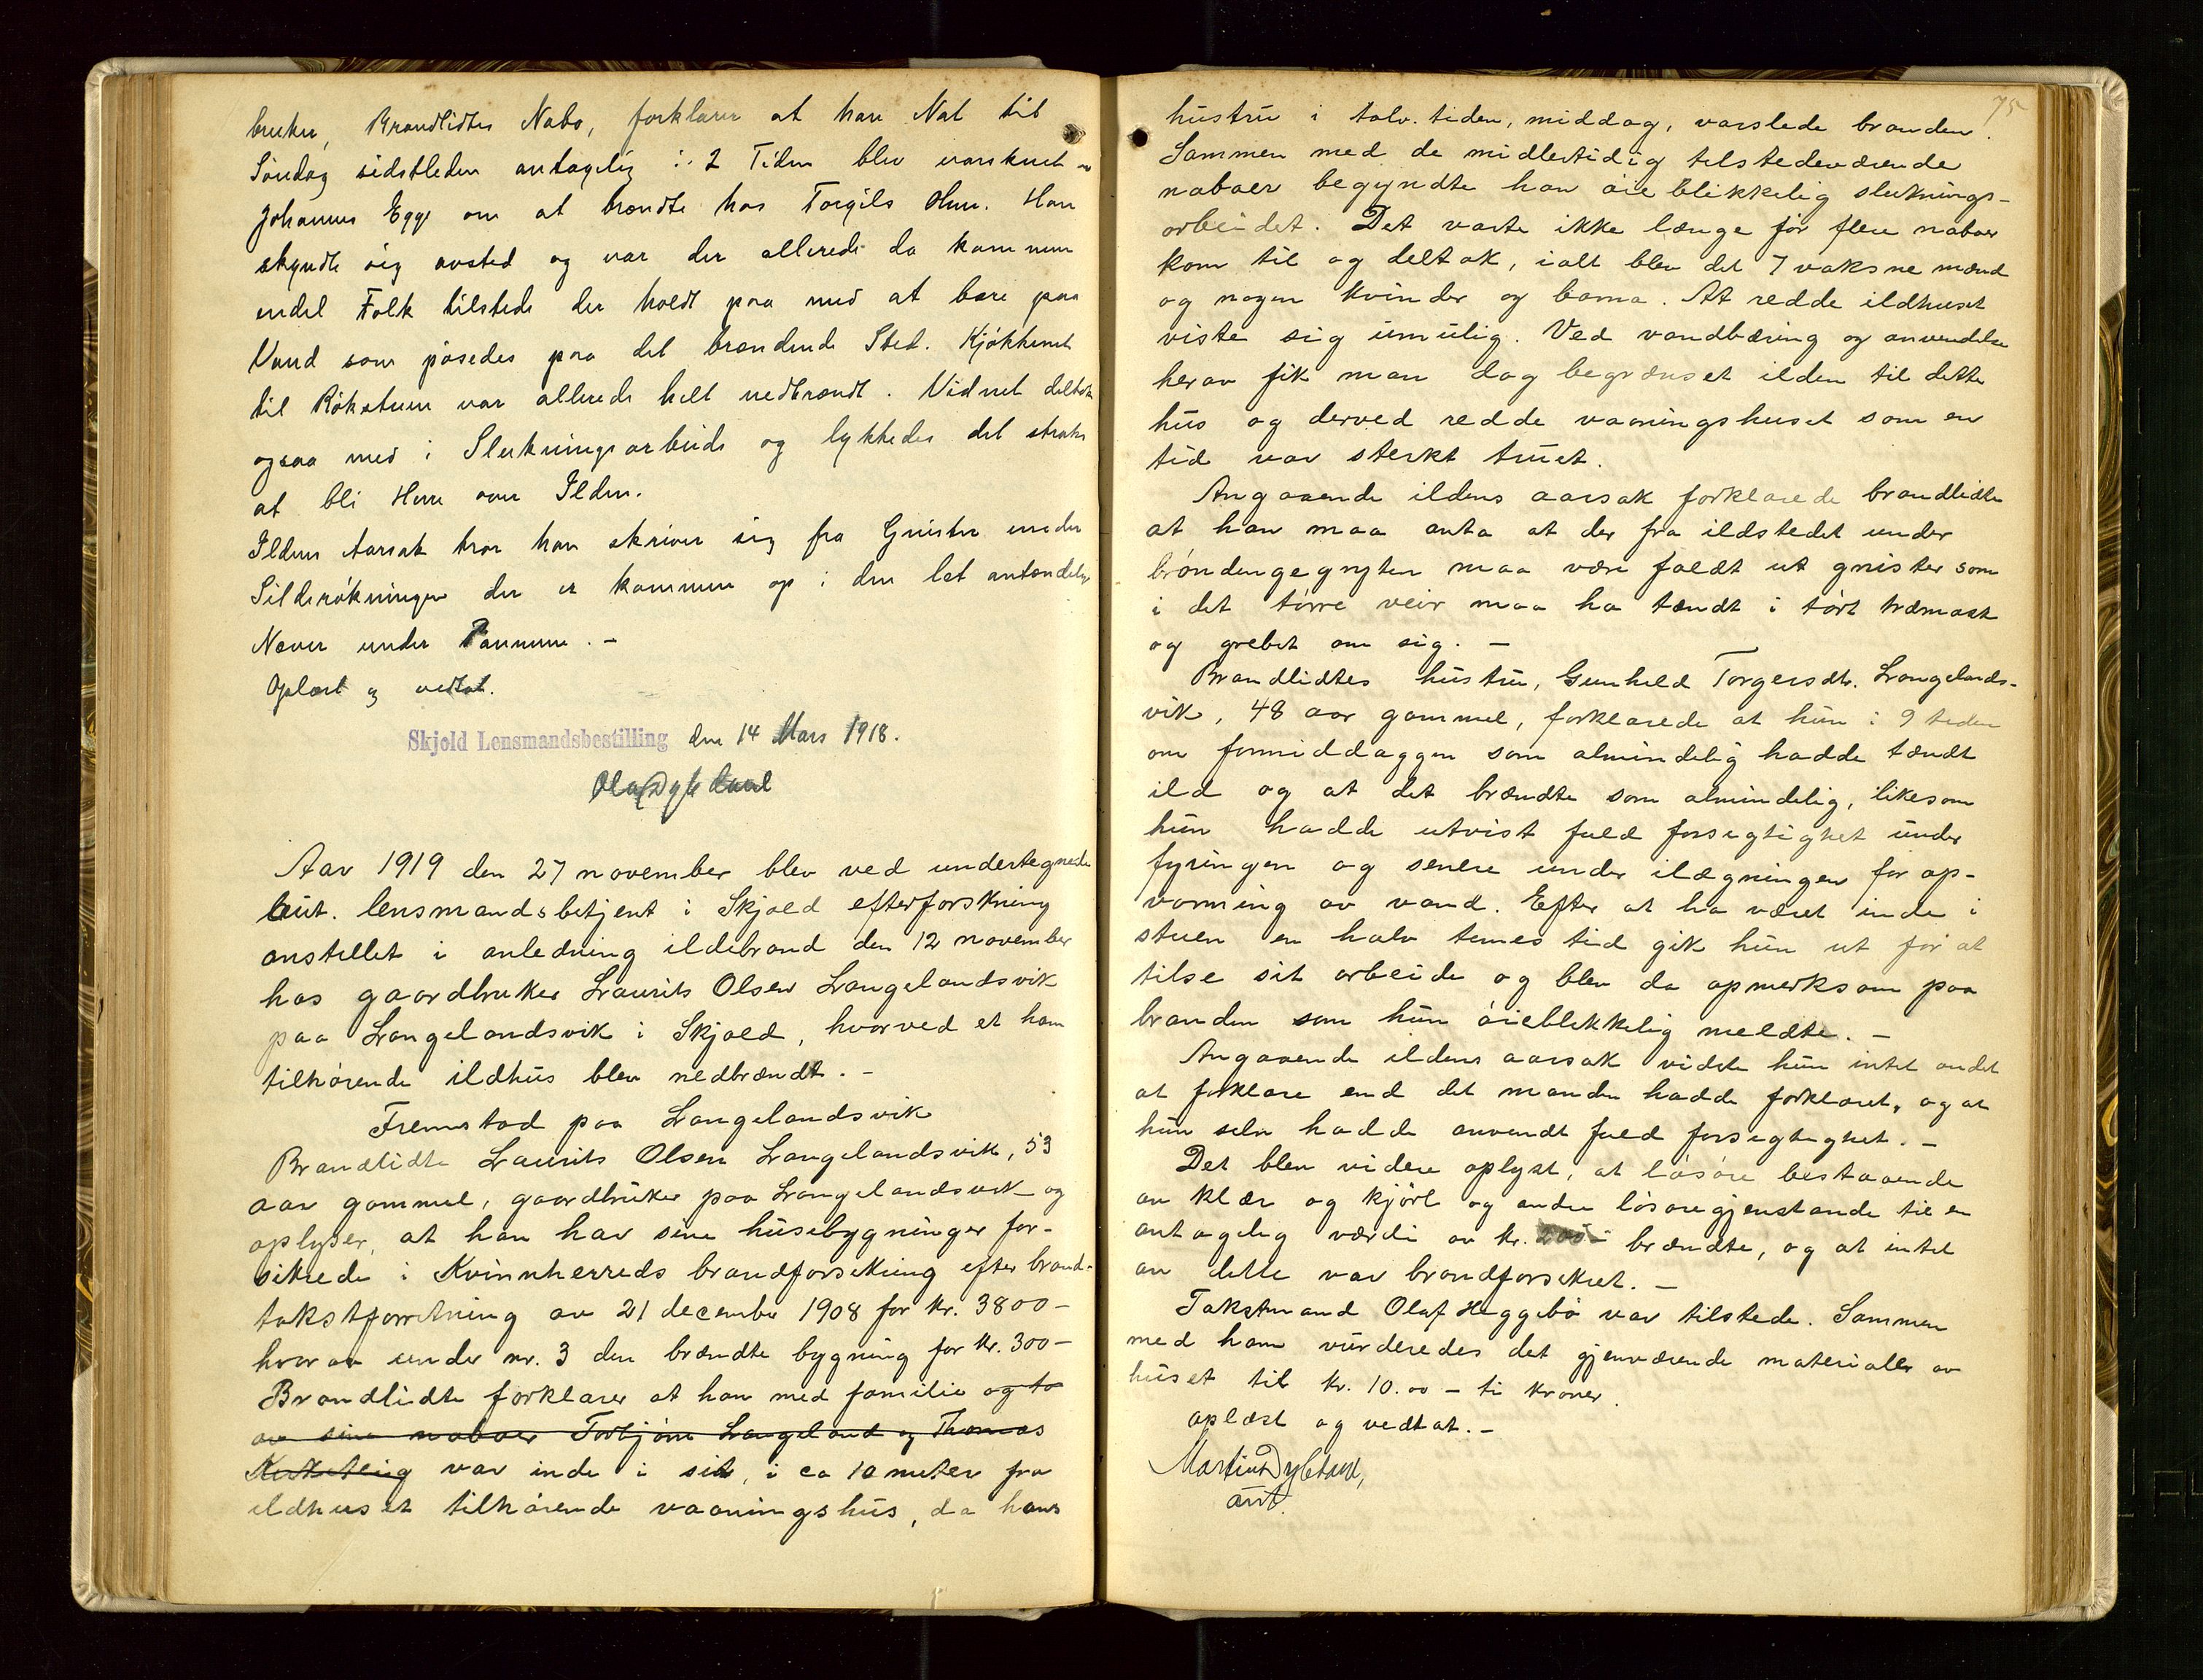 bruker, Brandlidtes Nabo, forklarer at han Nat til
Söndag sidstleden antagelig i 2 Tiden blev varskuet av
Johannes Egge om at brændte hos Torgils Ohm. Han
skyndte sig avsted og var der allerede da kommen
endel Folk tilstede der holdt paa med at bære paa
Vand som pösedes paa det brændende Sted. Kjökkenet
til Rökstuen var allerede helt nedbrændt. Vidnet deltok
ogsaa med i Slukningsarbeide og lykkedes det straks
at bli Herre over Ilden.
Ildens Aarsak tror han skriver sig fra Gnister under
Silderökningen der er kommen op i den let antændelige
Never under Pannene. -
Oplæst og vedtat.
Skjold Lensmandsbestilling den 14 Mars 1918.
Olaf Dybdaul
Aar 1919 den 27 november blev ved undertegnede
aut. lensmandsbetjent i Skjold efterforskning
anstillet i anledning ildebrand den 12 november
hos gaardbruker Laurits Olsen Langelandsvik
paa Langelandsvik i Skjold, hvorved et ham
tilhörende ildhus blev nedbrændt. -
Fremstod paa Langelandsvik
Brandlidte Laurits Olsen Langelandsvik, 53
aar gammel, gaardbruker paa Langelandsvik og
oplyser, at han har sine husebygninger for-
sikrede i Kvinnherreds brandforsikring efter brand-
takstforretning av 21 december 1908 for kr. 3800-
hvorav under nr. 3 den brændte bygning for kr. 300-
Brandlidte forklarer at han med familie og to
av sine naboer Torbjörn Langeland og Thomas
var inde i sit, i ca 10 meter fra
ildhuset tilhörende vaaningshus, da hans
75
hustru i tolv. tiden, middag, varslede branden.
Sammen med de midlertidig tilstedeværende
naboer begyndte han öieblikkelig sluknings-
arbeidet. Det varte ikke længe för flere naboer
kom til og deltok, ialt blev det 7 voksne mænd
og nogen kvinder og barna. At redde ildhuset
viste sig umulig. Ved vandbæring og anvendelse
herav fik man dog begrænset ilden til dette
hus og derved redde vaaningshuset som en
tid var sterkt truet.
Angaaende ildens aarsak forklarede brandlidte
at han maa anta at der fra ildstedet under
bröndengegryten maa være faldt ut gnister som
i det törre veir maa ha tændt i tört træmask
og grebet om sig. -
Brandlidtes hustru, Gunhild Torgersdtr. Langelands-
vik, 48 aar gammel, forklarede at hun i 9 tiden
om formiddaggen som almindelig hadde tændt
ild og at det brændte som almindelig, likesom
hun hadde utvist fuld forsigtighet under
fyringen og senere under ilægningen for op-
varming av vand. Efter at ha været inde i
stuen en halv times tid gik hun ut for at
tilse sit arbeide og blev da opmerksom paa
branden som hun öieblikkelig meldte. -
Angaaende ildens aarsak vidste hun intet andet
at forklare end det manden hadde forklaret, og at
hun selv hadde anvendt fuld forsigtighet. -
Det blev videre oplyst, at lösöre bestaaende
av klær og kjörl og andre lösöregjenstande til en
antagelig værdi av kr. 200- brændte, og at intet
av dette var brandforsikret. -
Takstmand Olaf Heggebö var tilstede. Sammen
med ham vurderedes det gjenværende materialer av
huset til kr. 10.00 - ti kroner.
oplæst og vedtat. -
Martin Dybdaul,
aut.